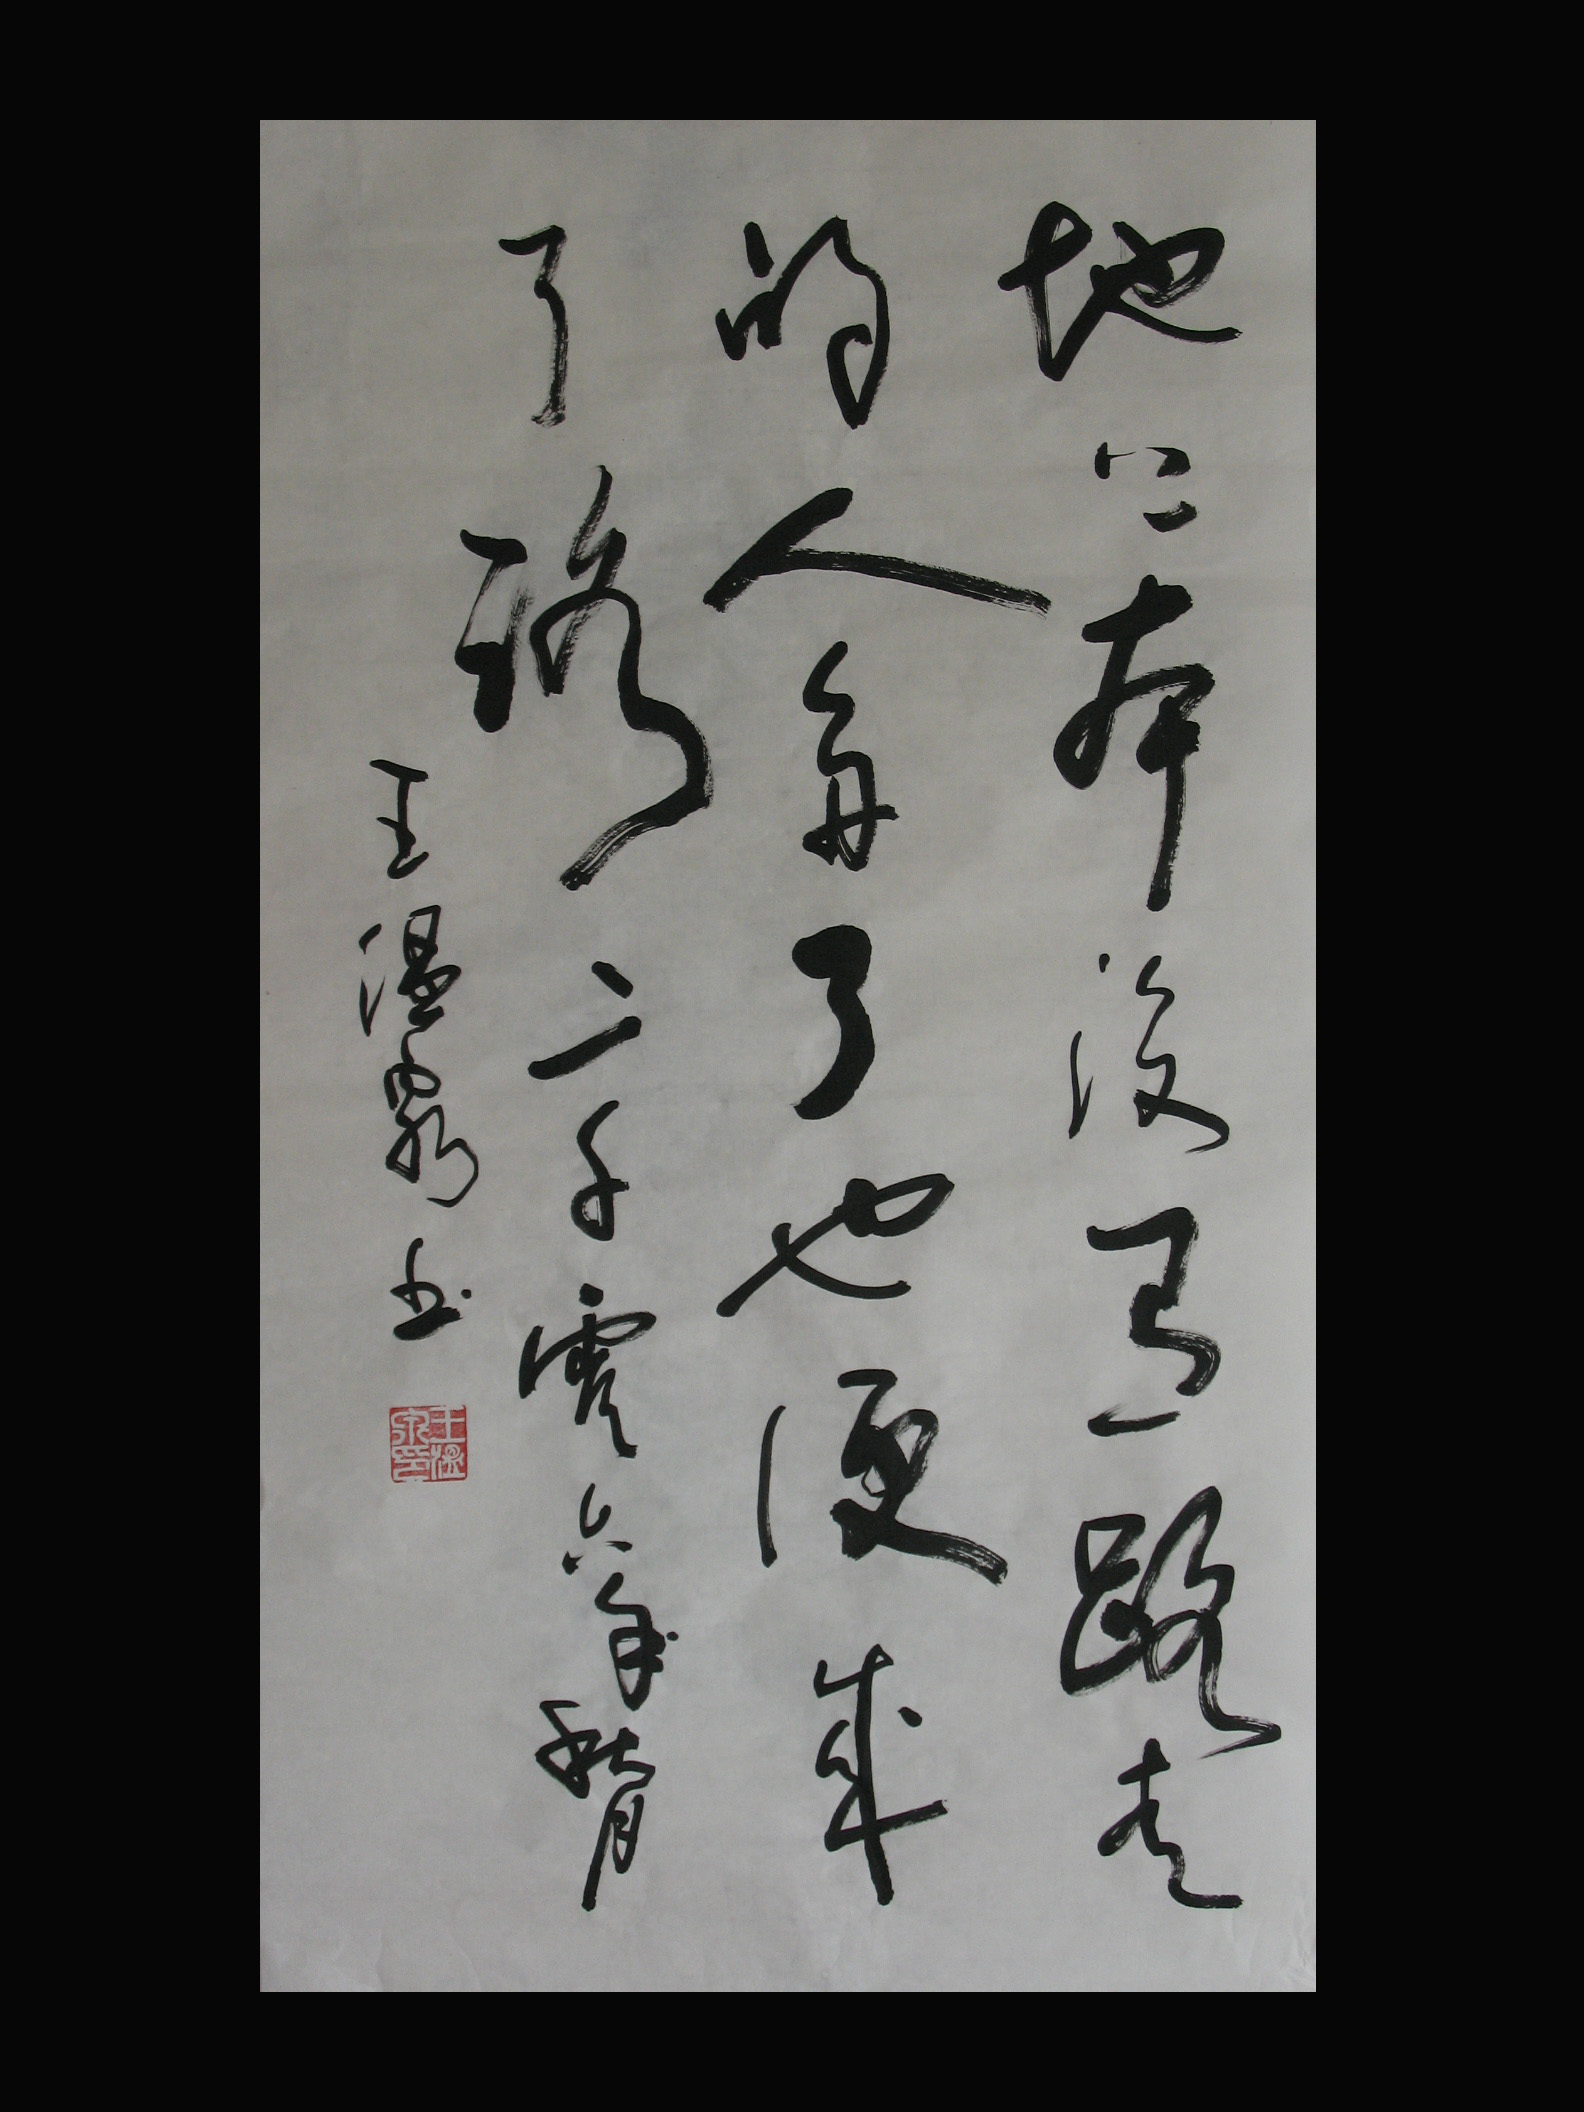 地上本没有路走
的人多了也便成
了路二千零六年秋月
王温泉书
王温泉印